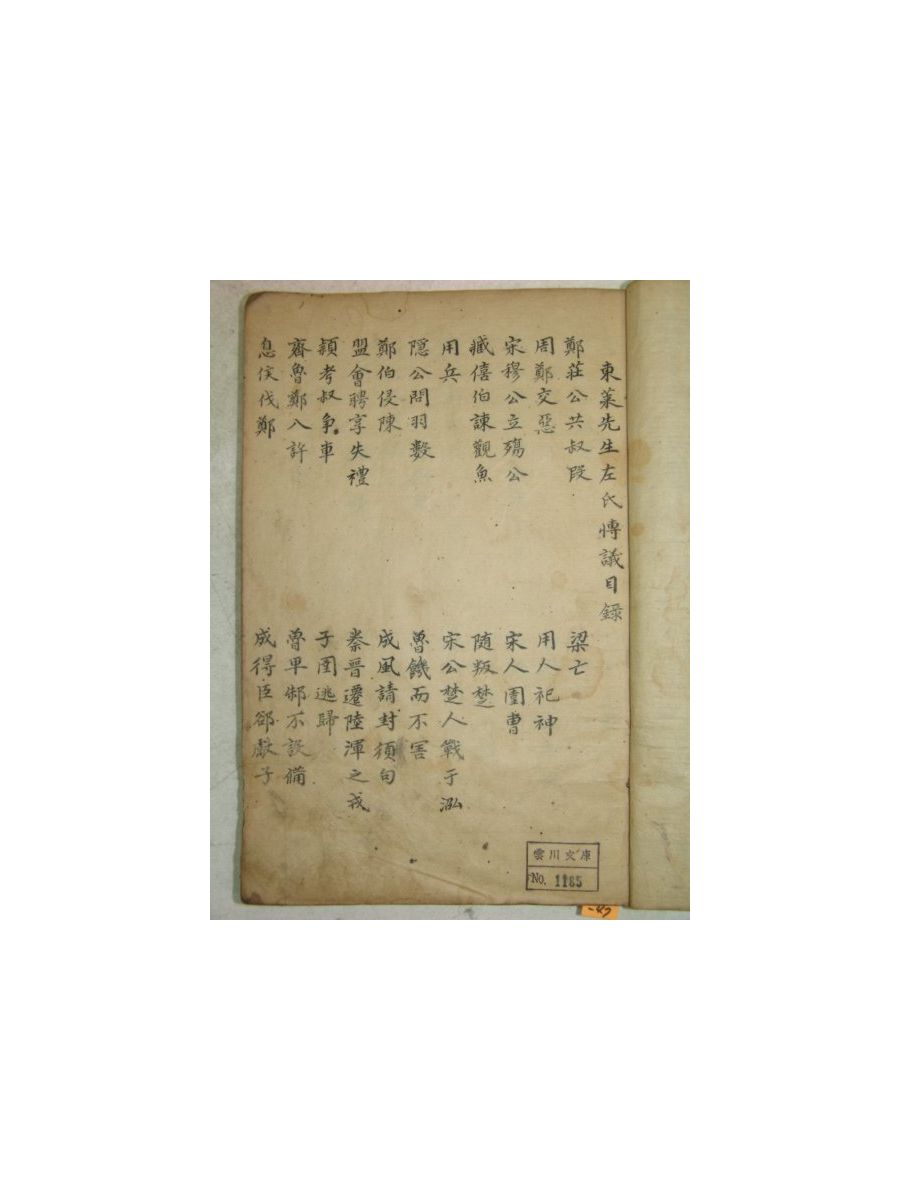 東萊先生左氏博議目録
鄭莊公共叔段
梁亡
周鄭交惡
用人祀神
宋穆公立殤公
宋人圍曹
臧僖伯諫觀魚
随叛楚
用兵
宋公楚人戰于泓
隱公問羽數
魯饑而不害
鄭伯侵陳
成風請封須句
盟會聘享失禮
秦晉遷陸渾之戎
頴考叔争車
子圉逃歸
齊魯鄭入許
魯卑邾不設備
息侯伐鄭
成得臣郤獻子
雲川文庫
No. 1185